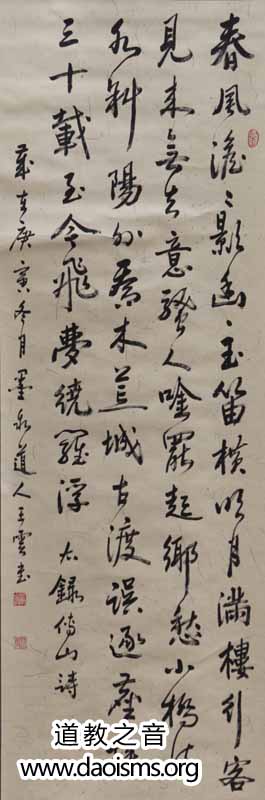 春風澹〻影幽〻玉笛橫月滿樓引客
見來無去意騷人吟罷起鄉愁小橋流
水斜陽外喬木荒城古渡誤逐塵
三十載至今飛夢繞羅浮 右錄傅山詩
歲在庚寅冬月墨泉道人王雲書
道教之音
www.daoisms.org